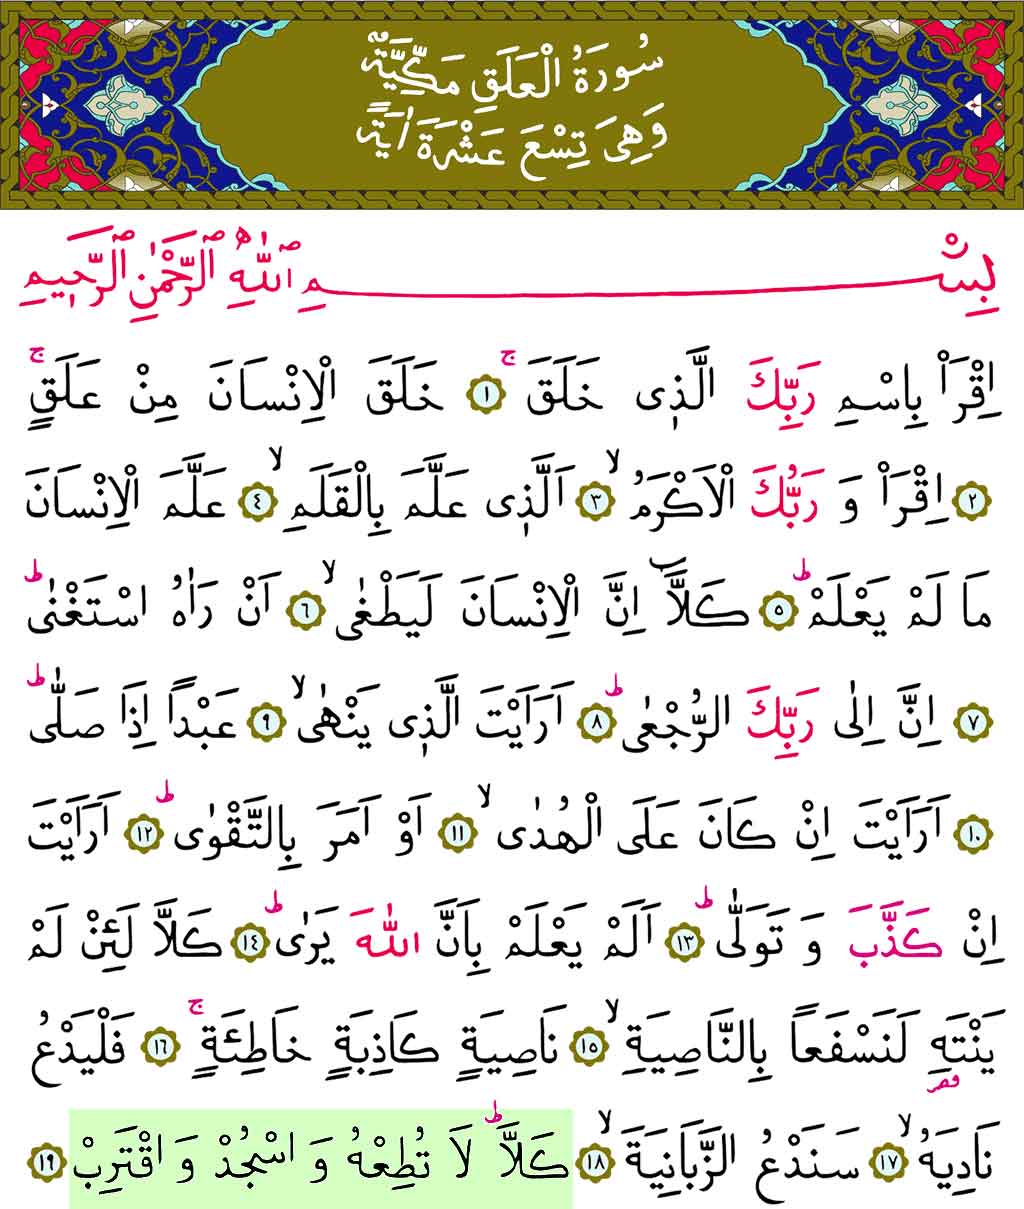 سُورَةُ الْعَلَقِ مَكِّيَّةٌ
وَهِىَ تِسْعَ عَشْرَةَ اٰيَةً
بِسْمِ اللّٰهِ الرَّحْمٰنِ الرَّحٖيمِ
اِقْرَاْ بِاسْمِ رَبِّكَ الَّذٖى خَلَقَۚ ﴿١﴾ خَلَقَ الْاِنْسَانَ مِنْ عَلَقٍۚ
﴿٢﴾ اِقْرَاْ وَ رَبُّكَ الْاَكْرَمُۙ ﴿٣﴾ اَلَّذٖى عَلَّمَ بِالْقَلَمِۙ ﴿٤﴾ عَلَّمَ الْاِنْسَانَ
مَا لَمْ يَعْلَمْؕ ﴿٥﴾ كَلَّٓا اِنَّ الْاِنْسَانَ لَيَطْغٰىۙ ﴿٦﴾ اَنْ رَاٰهُ اسْتَغْنٰىؕ
﴿٧﴾ اِنَّ اِلٰى رَبِّكَ الرُّجْعٰىؕ ﴿٨﴾ اَرَاَيْتَ الَّذٖى يَنْهٰىۙ ﴿٩﴾ عَبْداً اِذَا صَلّٰىؕ
﴿١٠﴾ اَرَاَيْتَ اِنْ كَانَ عَلَى الْهُدٰىۙ ﴿١١﴾ اَوْ اَمَرَ بِالتَّقْوٰىؕ ﴿١٢﴾ اَرَاَيْتَ
اِنْ كَذَّبَ وَ تَوَلّٰىؕ ﴿١٣﴾ اَلَمْ يَعْلَمْ بِاَنَّ اللّٰهَ يَرٰىؕ ﴿١٤﴾ كَلَّا لَئِنْ لَمْ
يَنْتَهِ لَنَسْفَعاً بِالنَّاصِيَةِۙ ﴿١٥﴾ نَاصِيَةٍ كَاذِبَةٍ خَاطِئَةٍۚ ﴿١٦﴾ فَلْيَدْعُ
نَادِيَهُۙ ﴿١٧﴾ سَنَدْعُ الزَّبَانِيَةَۙ ﴿١٨﴾ كَلَّاؕ لَا تُطِعْهُ وَ اسْجُدْ وَ اقْتَرِبْ ﴿١٩﴾